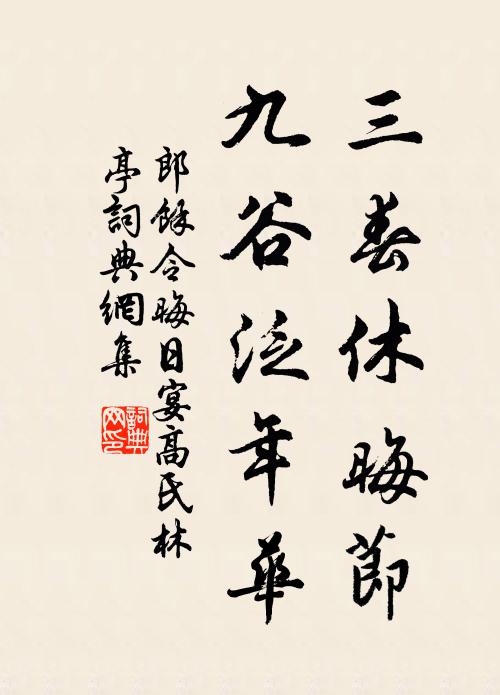 三春休晦節
九谷泛年華
郎餘令晦日宴高氏林
亭詞典網集
詞典
网印